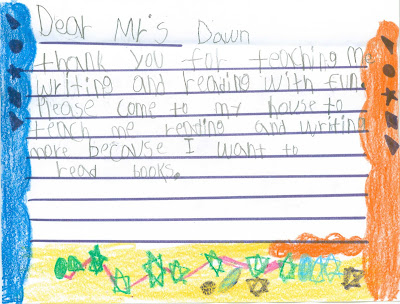 Dear Mr's Dawn
thank you for teaching me
writing and reading with fun.
Please come to my house to
teach me reading and writing
more because I want to
read books.